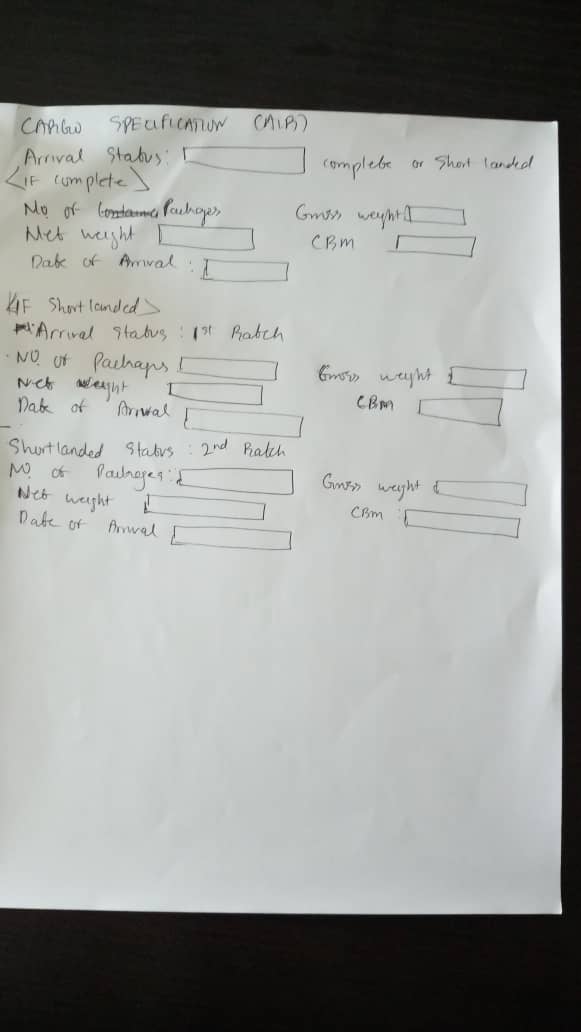 CARGO SPECIFICATION (AIR)
Arrival Status: complete or Short landed
<IF complete>
No of Packages Gross weight
Net weight CBM
Date of Arrival :
<IF Short landed>
Arrival Status : 1st Batch
No of Packages Gross weight
Net weight CBM
Date of Arrival
Shortlanded Status : 2nd Batch
No of Packages : Gross weight
Net weight CBM :
Date of Arrival